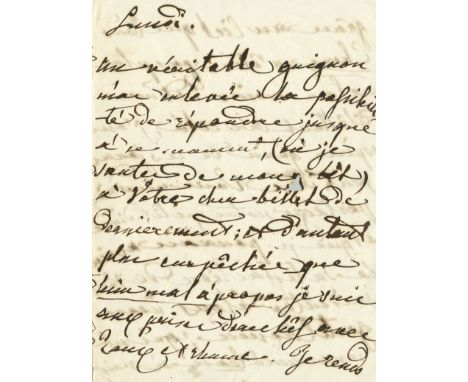 Lundi.
un véritable guignon
m'a enlevée la possibili
té de répondre jusque
à ce moment, (où je
sautes de mon lit)
à Votre cher billet de
dernièrement; et d'autant
plus empêchée que
bien mal à propos je suis
aux prises
Toux et rhume. Je rends